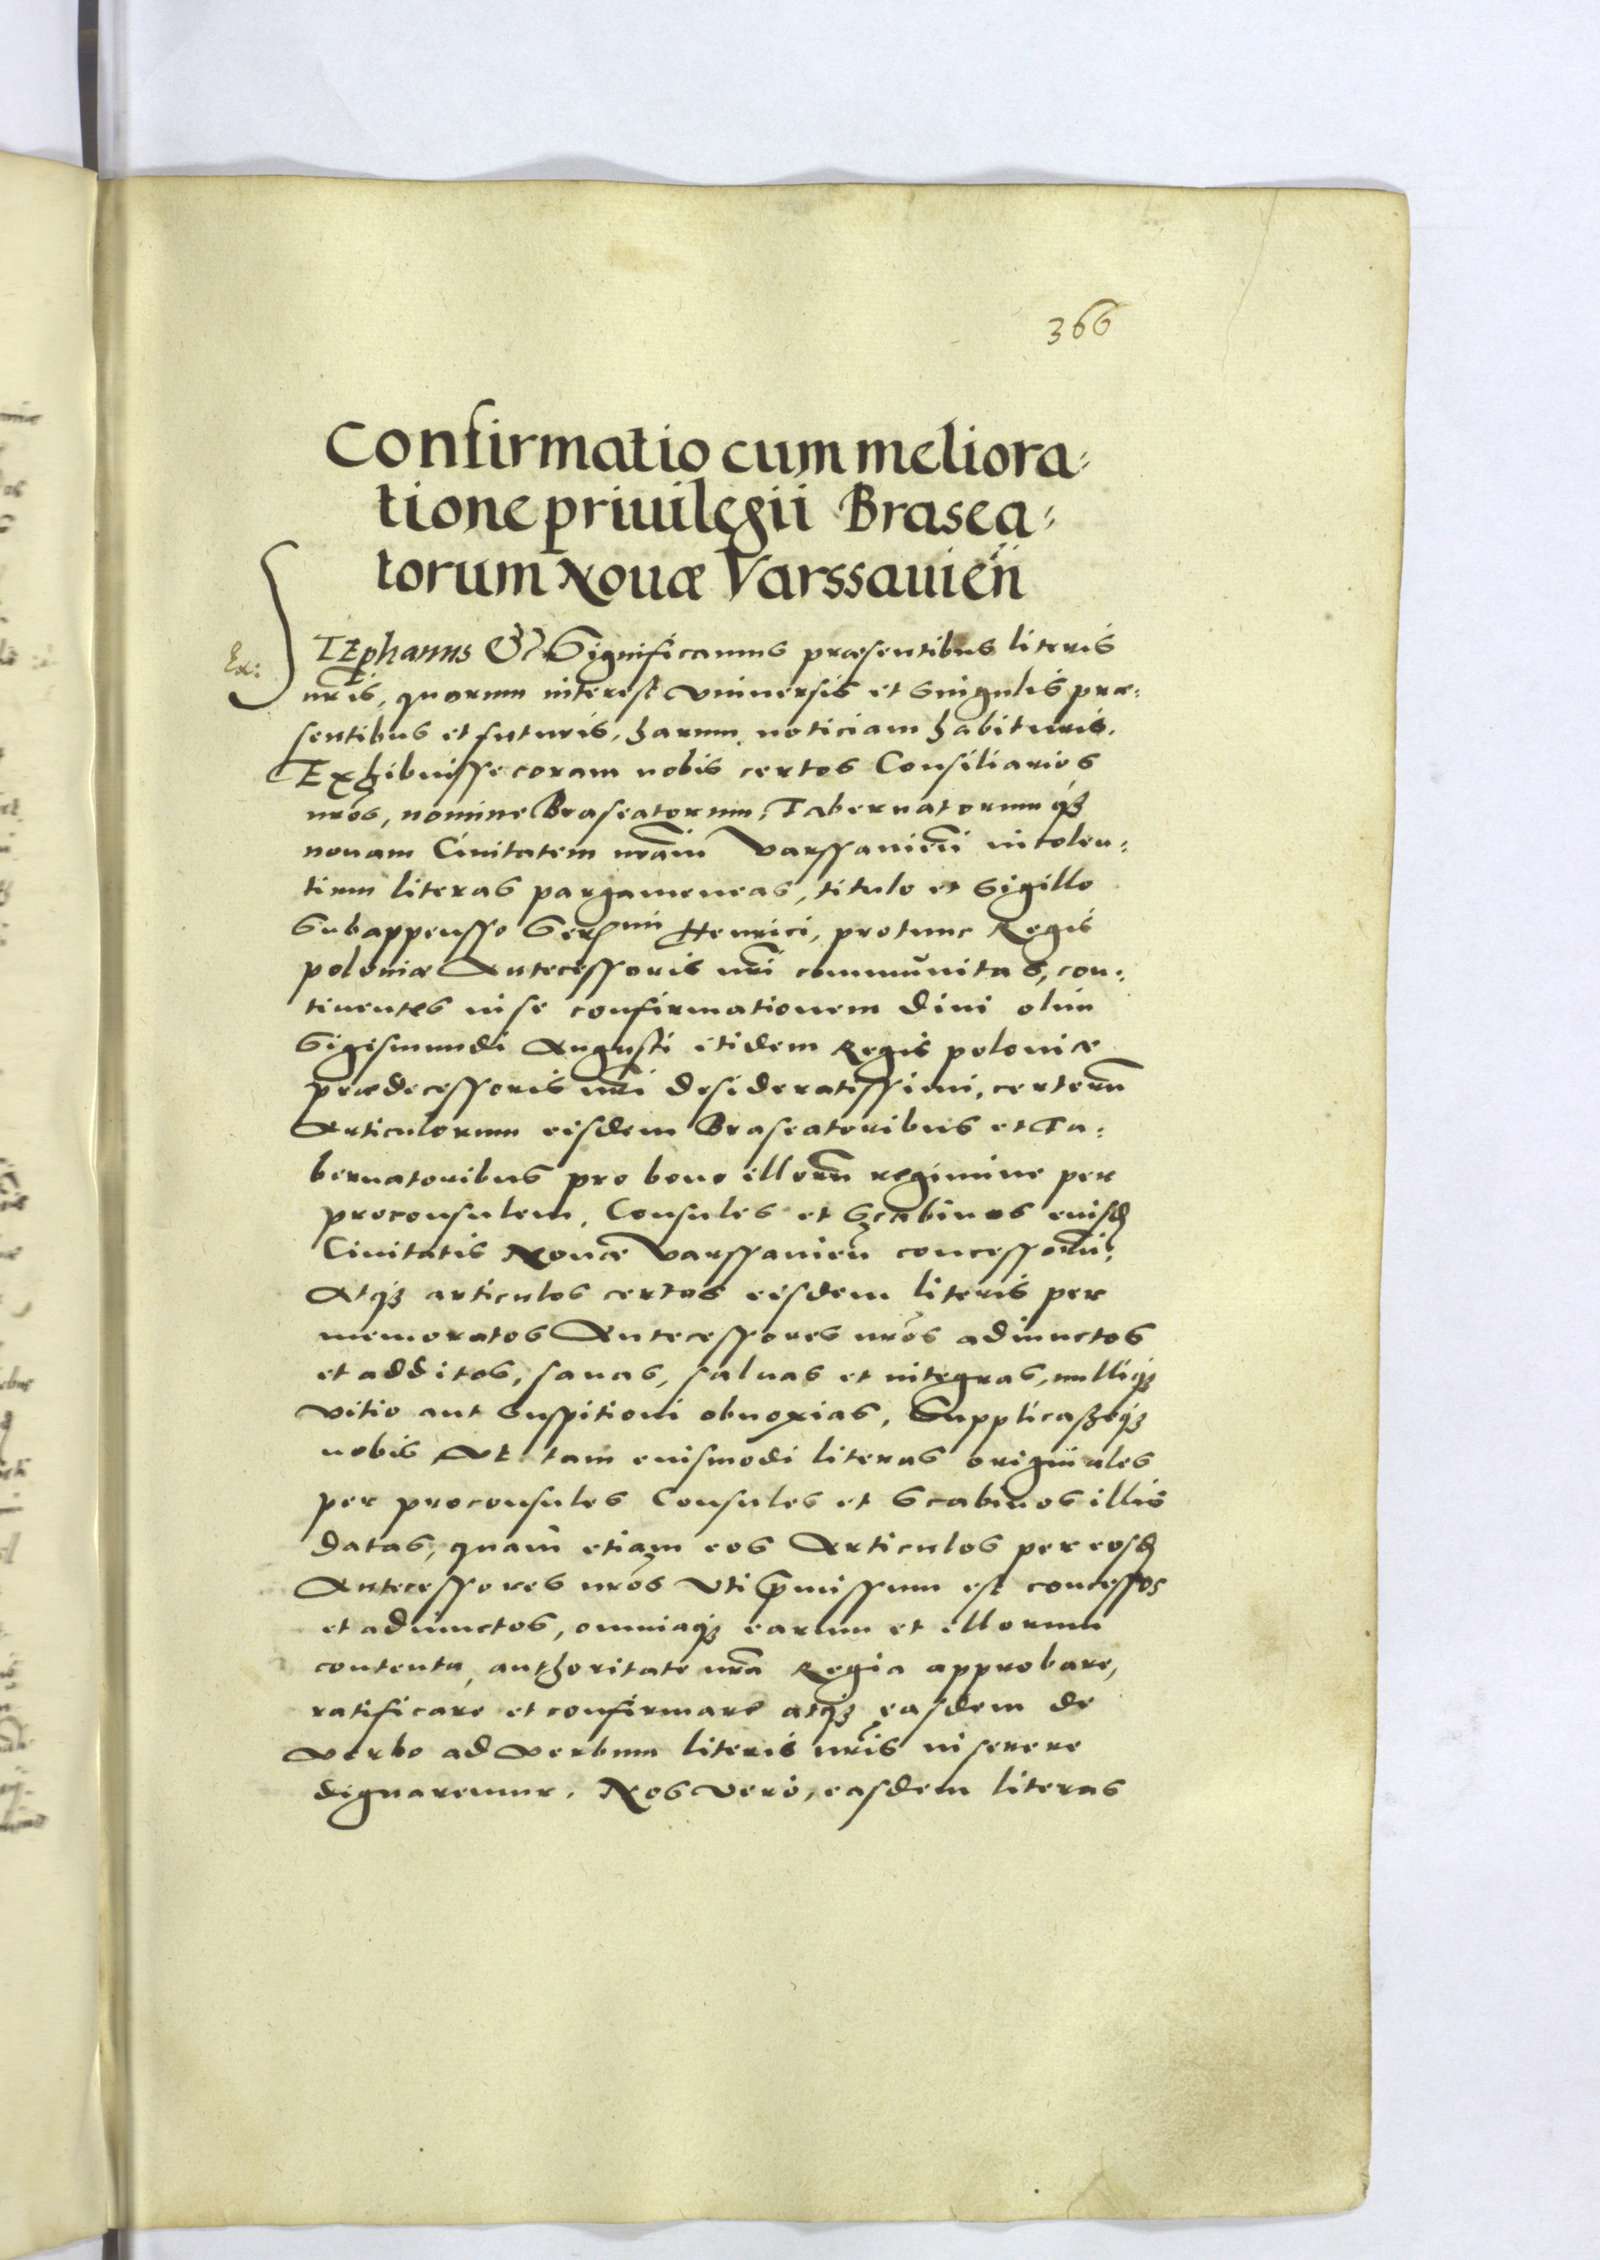 366
Confirmatio cum meliora=
tione priuilegii Brasea=
torum Nouæ Varssauieñ
Ex:
STEphanus &c Significamus præsentibus literis
nr̃is, quorum interest vniuersis et singulis præ=
sentibus et futuris, harum noticiam habituris.
Exhibuisse coram nobis certos Consiliarios
nr̃os, nomine Braseatorum, Tabernatorumqȝ
nouam Ciuitatem nr̃am Varssauieñ incolen=
tium literas pargameneas, titulo et sigillo
subappensso Sermi Henrici, protunc Regis
poloniæ Antecessoris nr̃i communitas, con=
tinentes in se confirmationem diui olim
Sigismundi Augusti itidem Regis poloniæ
prædecessoris nr̃i desideratissimi, certorũ
Articulorum eisdem Braseatoribus et Ta=
bernatoribus pro bono illorũ regimine per
proconsulem, Consules et Scabinos eiusd
Ciuitatis Nouæ Varssauieñ concessorũ,
Atqȝ articulos certos eisdem literis per
memoratos Antecessores nr̃os adiunctos
et additos, sanas, saluas et integras, nulliqȝ
vitio aut suspitioni obnoxias, Supplicasseqȝ
nobis Vt tam eiusmodi literas originales
per proconsules Consules et Scabinos illis
datas, quam etiam eos Articulos per eosd
Antecessores nr̃os vti p̃missum est concessos
et adiunctos, omniaqȝ earum et illorum
contenta, authoritate nr̃a Regia approbare,
ratificare et confirmare atqȝ easdem de
verbo ad verbum literis nr̃is inserere
dignaremur. Nos vero, easdem literas